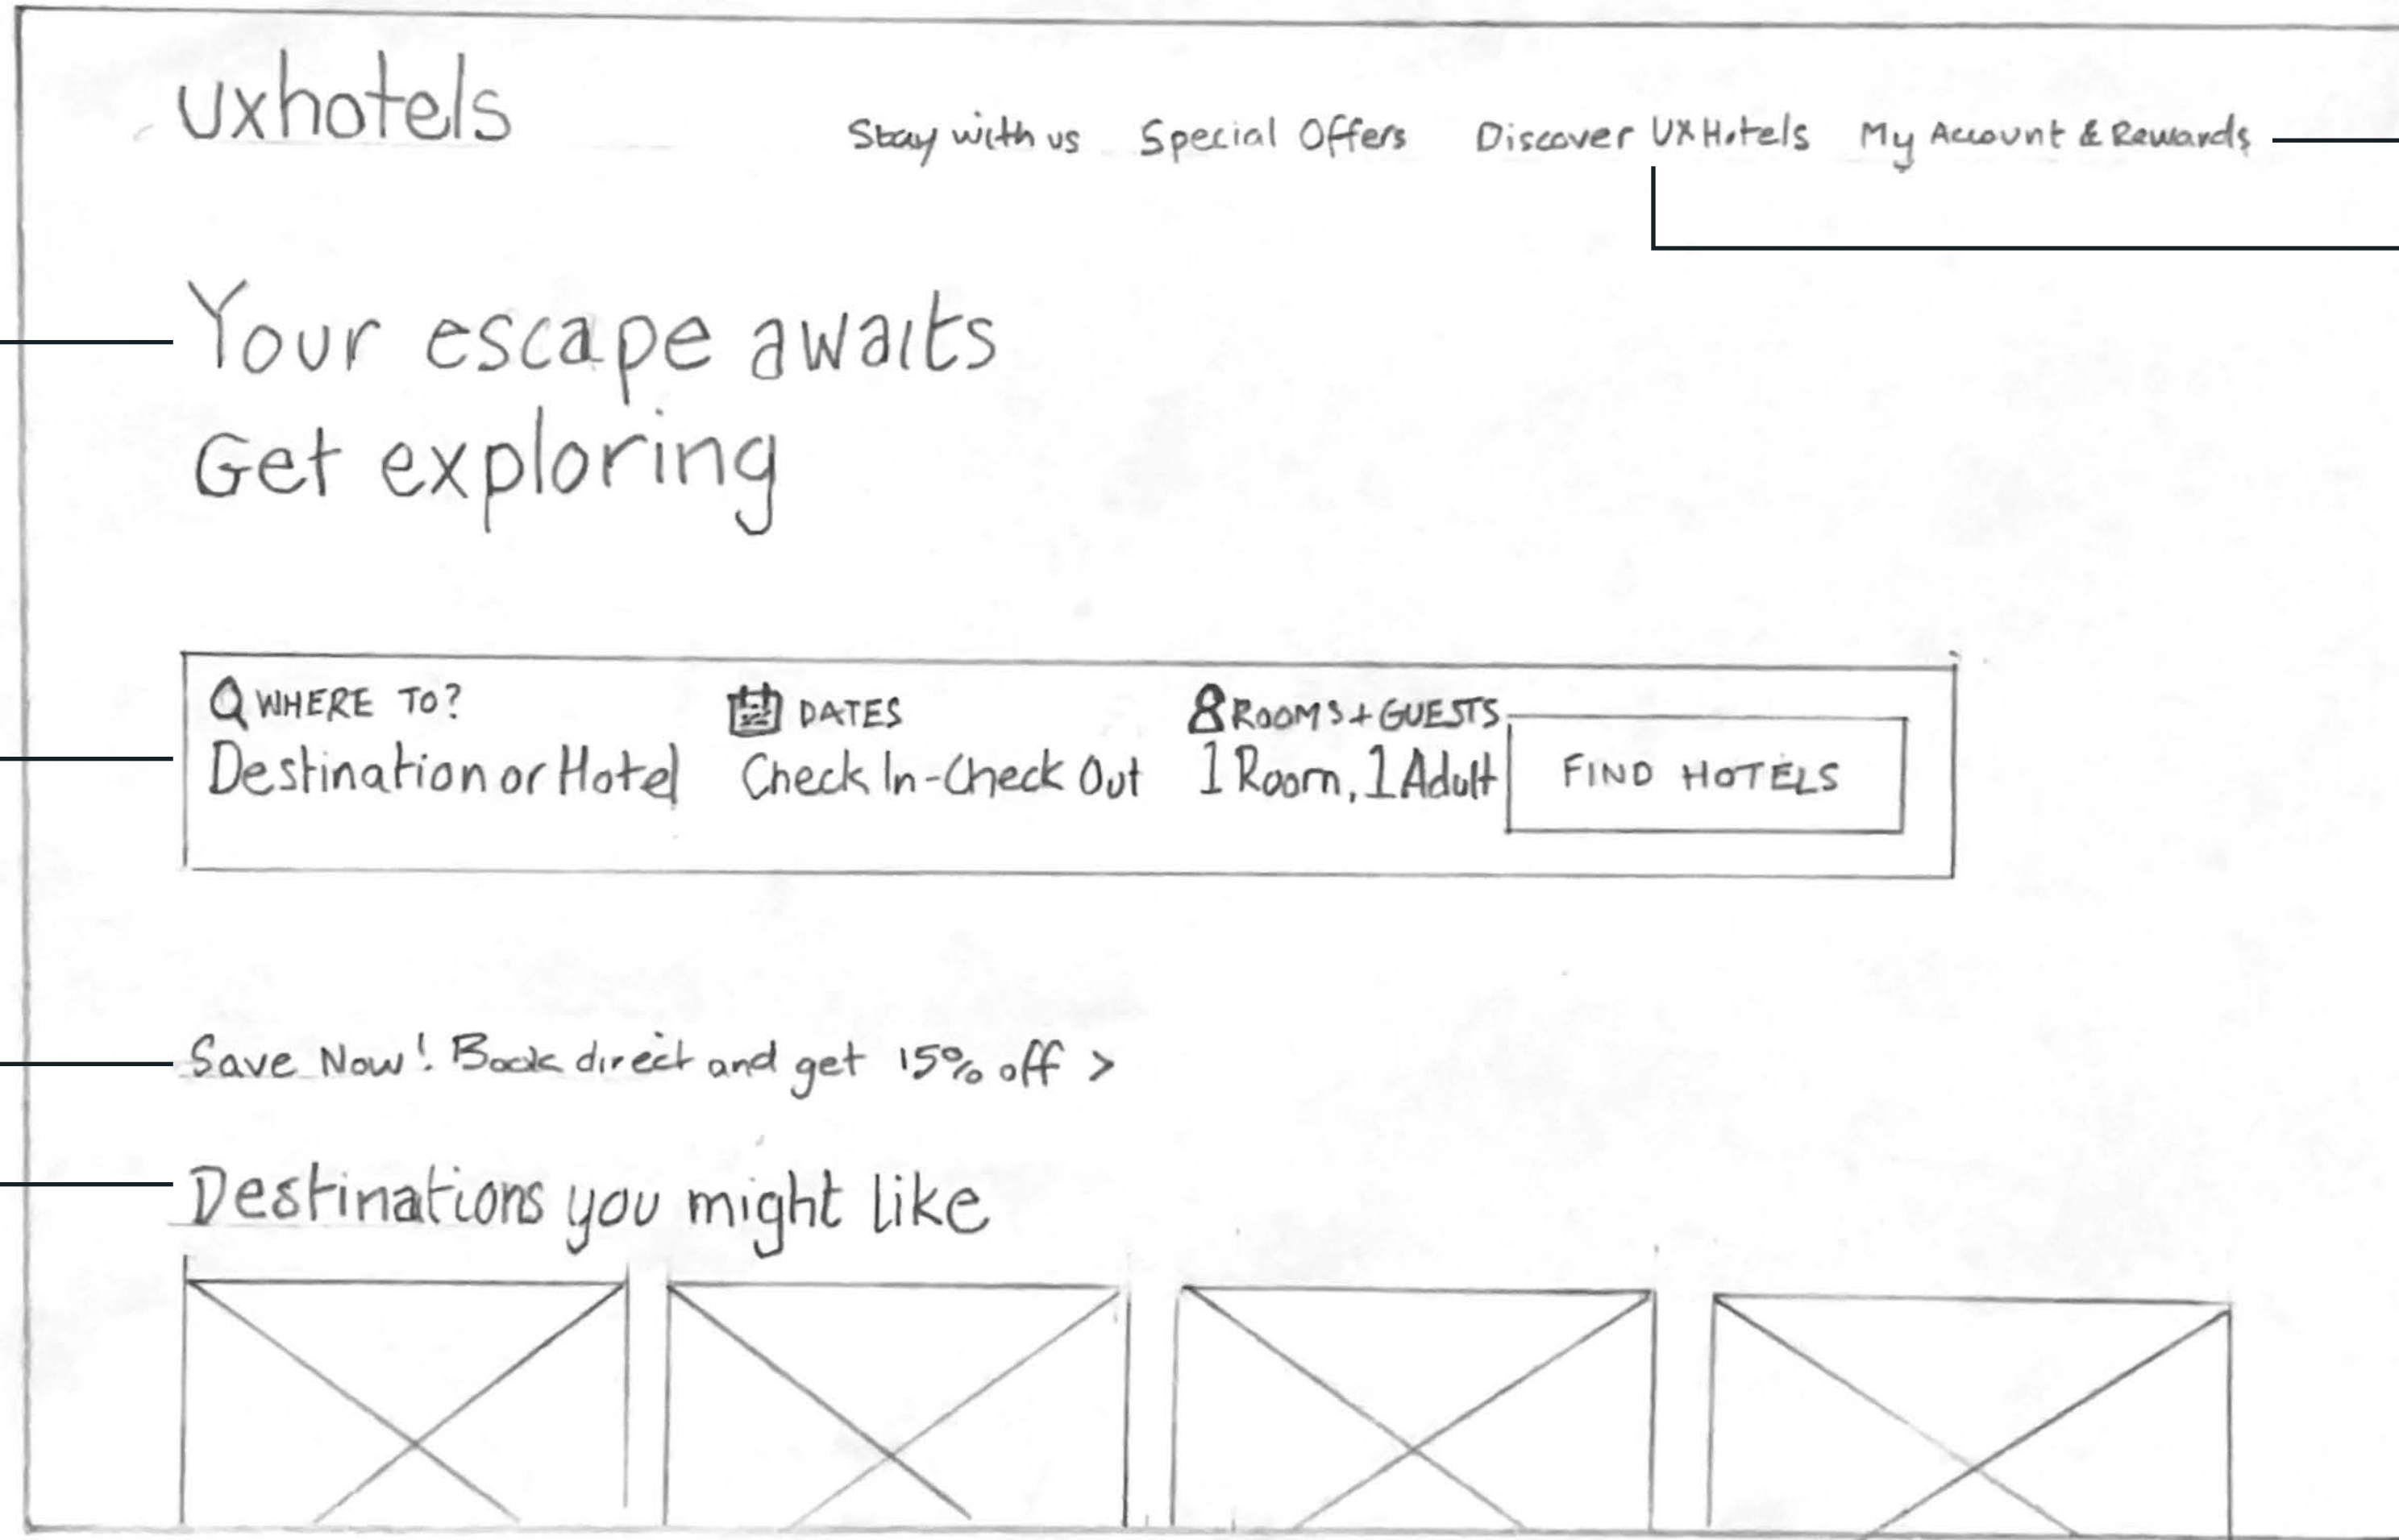 uxhotels
Stay with us Special Offers Discover UXHotels My Account & Rewards
Your escape awaits
Get exploring
WHERE TO? DATES ROOMS + GUESTS
Destination or Hotel Check In-Check Out 1 Room, 1 Adult FIND HOTELS
Save Now! Book direct and get 15% off >
Destinations you might like